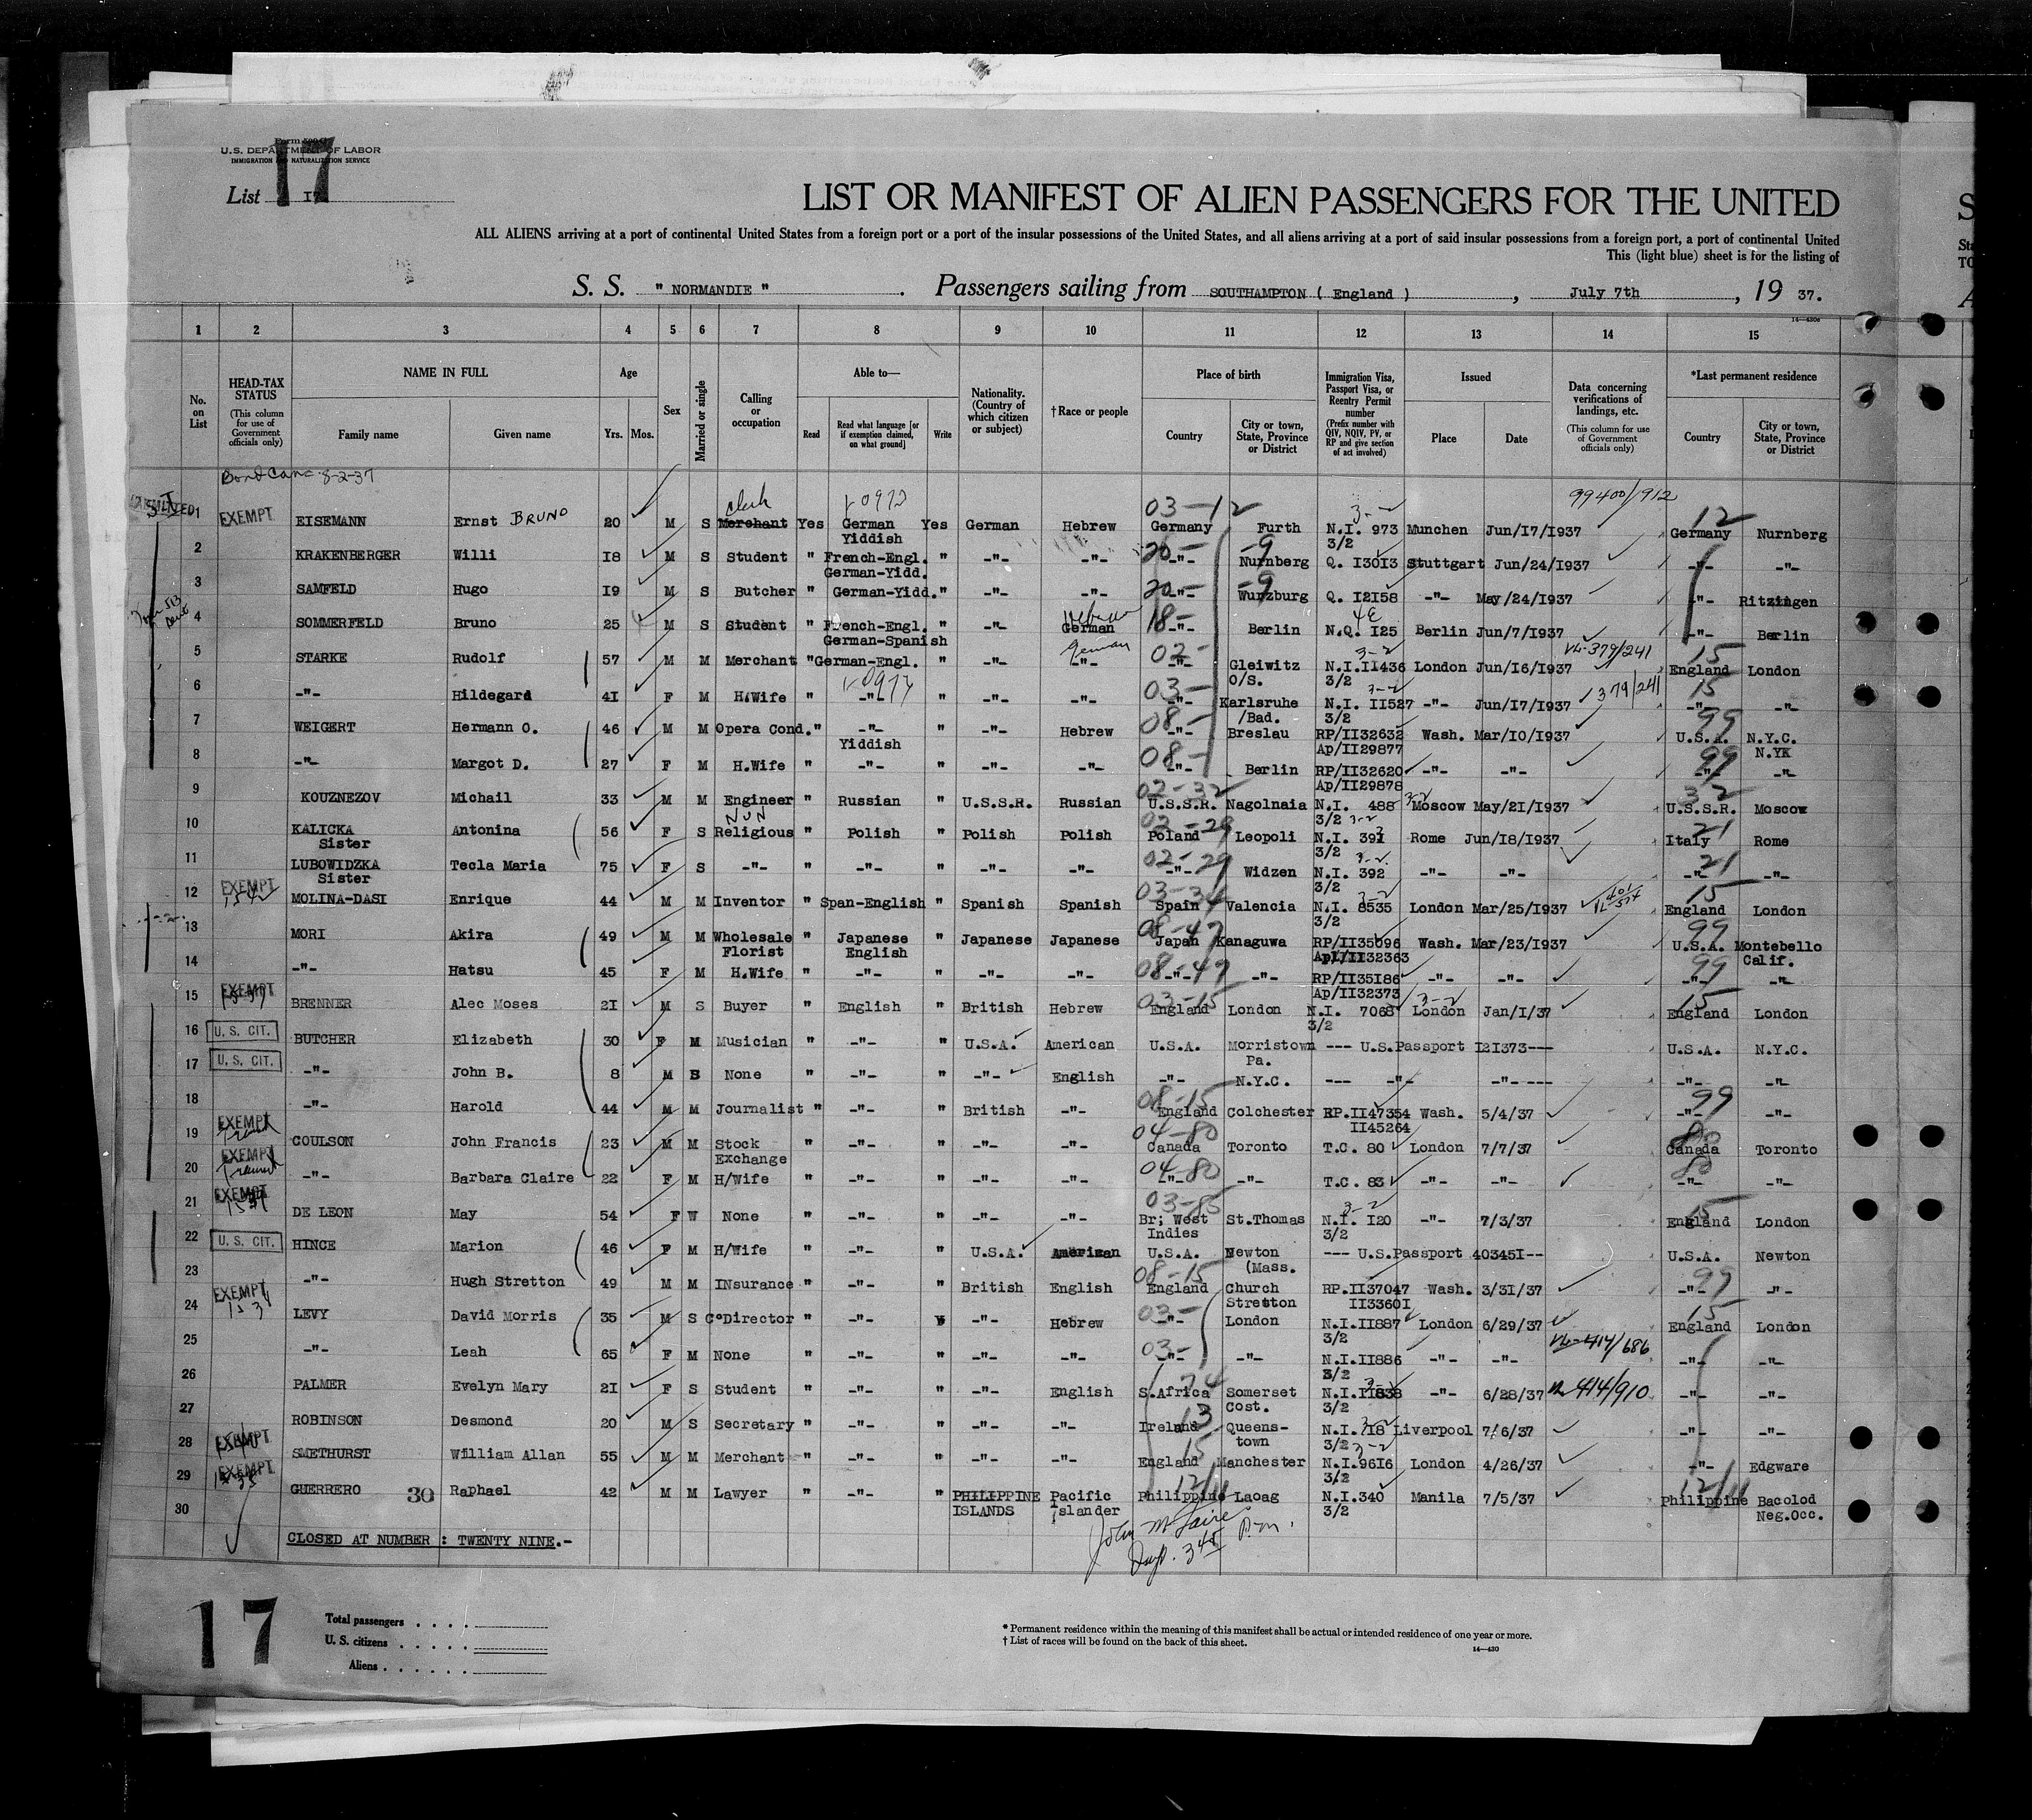 Form 500
U.S. DEPARTMENT OF LABOR
IMMIGRATION AND NATURALIZATION SERVICE
17
List I7
LIST OR MANIFEST OF ALIEN PASSENGERS FOR THE UNITED
ALL ALIENS arriving at a port of continental United States from a foreign port or a port of the insular possessions of the United States, and all aliens arriving at a port of said insular possessions from a foreign port, a port of continental United
This (light blue) sheet is for the listing of
S. S. " NORMANDIE " . Passengers sailing from SOUTHAMPTON ( England ) , July 7th , 19 37.
1 2 3 4 5 6 7 8 9 10 11 12 13 14 15
No. on List
HEAD-TAX STATUS (This column for use of Government officials only)
NAME IN FULL Family name Given name
Age Yrs. Mos.
Sex
Married or single
Calling or occupation
Able to— Read Read what language [or if exemption claimed, on what ground] Write
Nationality. (Country of which citizen or subject)
†Race or people
Place of birth Country City or town, State, Province or District
Immigration Visa, Passport Visa, or Reentry Permit number (Prefix number with QIV, NQIV, PV, or RP and give section of act involved)
Issued Place Date
Data concerning verifications of landings, etc. (This column for use of Government officials only)
*Last permanent residence Country City or town, State, Province or District
Bond Canc 8-2-37
clerk 03-12 3-2 99400/912 12
1 EXEMPT EISEMANN Ernst BRUNO 20 M S Merchant Yes German Yes German Hebrew Germany Furth N.I. 973 Munchen Jun/I7/I937 Germany Nurnberg
Yiddish 3/2
2 KRAKENBERGER Willi I8 M S Student " French-Engl. " -"- -"- 20- -"- -9 Nurnberg Q. I30I3 Stuttgart Jun/24/I937 -"- -"-
German-Yidd.
3 SAMFELD Hugo I9 M S Butcher " German-Yidd." -"- -"- 20- -"- -9 Wurzburg Q. I2I58 -"- May/24/I937 -"- Ritzingen
4 SOMMERFELD Bruno 25 M S Student " French-Engl. " -"- German Hebrew 18- -"- Berlin N.Q. I25 Berlin Jun/7/I937 -"- Berlin
German-Spanish
5 STARKE Rudolf 57 M M Merchant "German-Engl. " -"- -"- German 02- -"- Gleiwitz O/S. N.I.II436 3/2 London Jun/I6/I937 379/241 15 England London
6 -"- Hildegard 4I F M H.Wife " -"- " -"- -"- 03- -"- Karlsruhe /Bad. N.I. II527 3/2 -"- Jun/I7/I937 379/241 15 -"- -"-
7 WEIGERT Hermann O. 46 M M Opera Cond." -"- " -"- Hebrew 08- -"- Breslau RP/II32632 Wash. Mar/I0/I937 99 U.S.A. N.Y.C.
Yiddish Ap/II29877 N.YK
8 -"- Margot D. 27 F M H.Wife " -"- " -"- -"- 08- -"- Berlin RP/II32620 -"- -"- 99 -"- -"-
Ap/II29878
9 KOUZNEZOV Michail 33 M M Engineer " Russian " U.S.S.R. Russian 02-32 U.S.S.R. Nagolnaia N.I. 488 3/2 Moscow May/2I/I937 32 U.S.S.R. Moscow
NUN
10 KALICKA Sister Antonina 56 F S Religious " Polish " Polish Polish 02-29 Poland Leopoli N.I. 39I 3/2 Rome Jun/I8/I937 21 Italy Rome
11 LUBOWIDZKA Sister Tecla Maria 75 F S -"- " -"- " -"- -"- 02-29 -"- Widzen N.I. 392 3/2 -"- -"- 21 -"- -"-
12 EXEMPT MOLINA-DASI Enrique 44 M M Inventor " Span-English " Spanish Spanish 03-34 Spain Valencia N.I. 8535 3/2 London Mar/25/I937 15 England London
13 MORI Akira 49 M M Wholesale Florist " Japanese English " Japanese Japanese 08-47 Japan Kanaguwa RP/II35096 Ap/II32363 Wash. Mar/23/I937 99 U.S.A. Montebello Calif.
14 -"- Hatsu 45 F M H.Wife " -"- " -"- -"- 08-47 -"- -"- RP/II35I86 Ap/II32373 -"- -"- 99 -"- -"-
15 EXEMPT BRENNER Alec Moses 2I M S Buyer " English " British Hebrew 03-15 England London N.I. 7068 3/2 London Jan/I/37 15 England London
16 U. S. CIT. BUTCHER Elizabeth 30 F M Musician " -"- " U.S.A. American U.S.A. Morristown Pa. --- U.S.Passport I2I373--- U.S.A. N.Y.C.
17 U. S. CIT. -"- John B. 8 M S None " -"- " -"- English -"- N.Y.C. --- -"- -"- --- -"- -"-
18 -"- Harold 44 M M Journalist " -"- " British -"- 08-15 England Colchester RP.II47354 II45264 Wash. 5/4/37 99 -"- -"-
19 EXEMPT COULSON John Francis 23 M M Stock Exchange " -"- " -"- -"- 04-80 Canada Toronto T.C. 80 London 7/7/37 80 Canada Toronto
20 EXEMPT -"- Barbara Claire 22 F M H/Wife " -"- " -"- -"- 04-80 -"- -"- T.C. 83 -"- -"- 80 -"- -"-
21 EXEMPT DE LEON May 54 F W None " -"- " -"- -"- 03-85 Br; West Indies St.Thomas N.I. I20 3/2 -"- 7/3/37 15 England London
22 U. S. CIT. HINCE Marion 46 F M H/Wife " -"- " U.S.A. American U.S.A. Newton (Mass. --- U.S.Passport 40345I-- U.S.A. Newton
23 -"- Hugh Stretton 49 M M INsurance " -"- " British English 08-15 England Church Stretton RP.II37047 II3360I Wash. 3/3I/37 99 -"- -"-
24 EXEMPT LEVY David Morris 35 M S C°Director " -"- " -"- Hebrew 03- -"- London N.I.II887 3/2 London 6/29/37 15 England London
25 -"- Leah 65 F M None " -"- " -"- -"- 03- -"- -"- N.I.II886 3/2 -"- -"- 414/686 -"- -"-
26 PALMER Evelyn Mary 2I F S Student " -"- " -"- English 74 S.Africa Somerset Cost. N.I.II838 3/2 -"- 6/28/37 414/910 -"- -"-
27 ROBINSON Desmond 20 M S Secretary " -"- " -"- -"- 13 Ireland Queens-town N.I. 7I8 3/2 Liverpool 7/6/37 -"- -"-
28 EXEMPT SMETHURST William Allan 55 M M Merchant " -"- " -"- -"- 15 England Manchester N.I.96I6 3/2 London 4/26/37 -"- Edgware
29 EXEMPT GUERRERO 30 Raphael 42 M M Lawyer " -"- " PHILIPPINE ISLANDS Pacific Islander Philippine Laoag N.I.340 3/2 Manila 7/5/37 Philippine Bacolod Neg.Occ.
30
CLOSED AT NUMBER : TWENTY NINE.-
17
Total passengers . . . .
U. S. citizens . . . . .
Aliens . . . . . .
* Permanent residence within the meaning of this manifest shall be actual or intended residence of one year or more.
† List of races will be found on the back of this sheet.
14—430